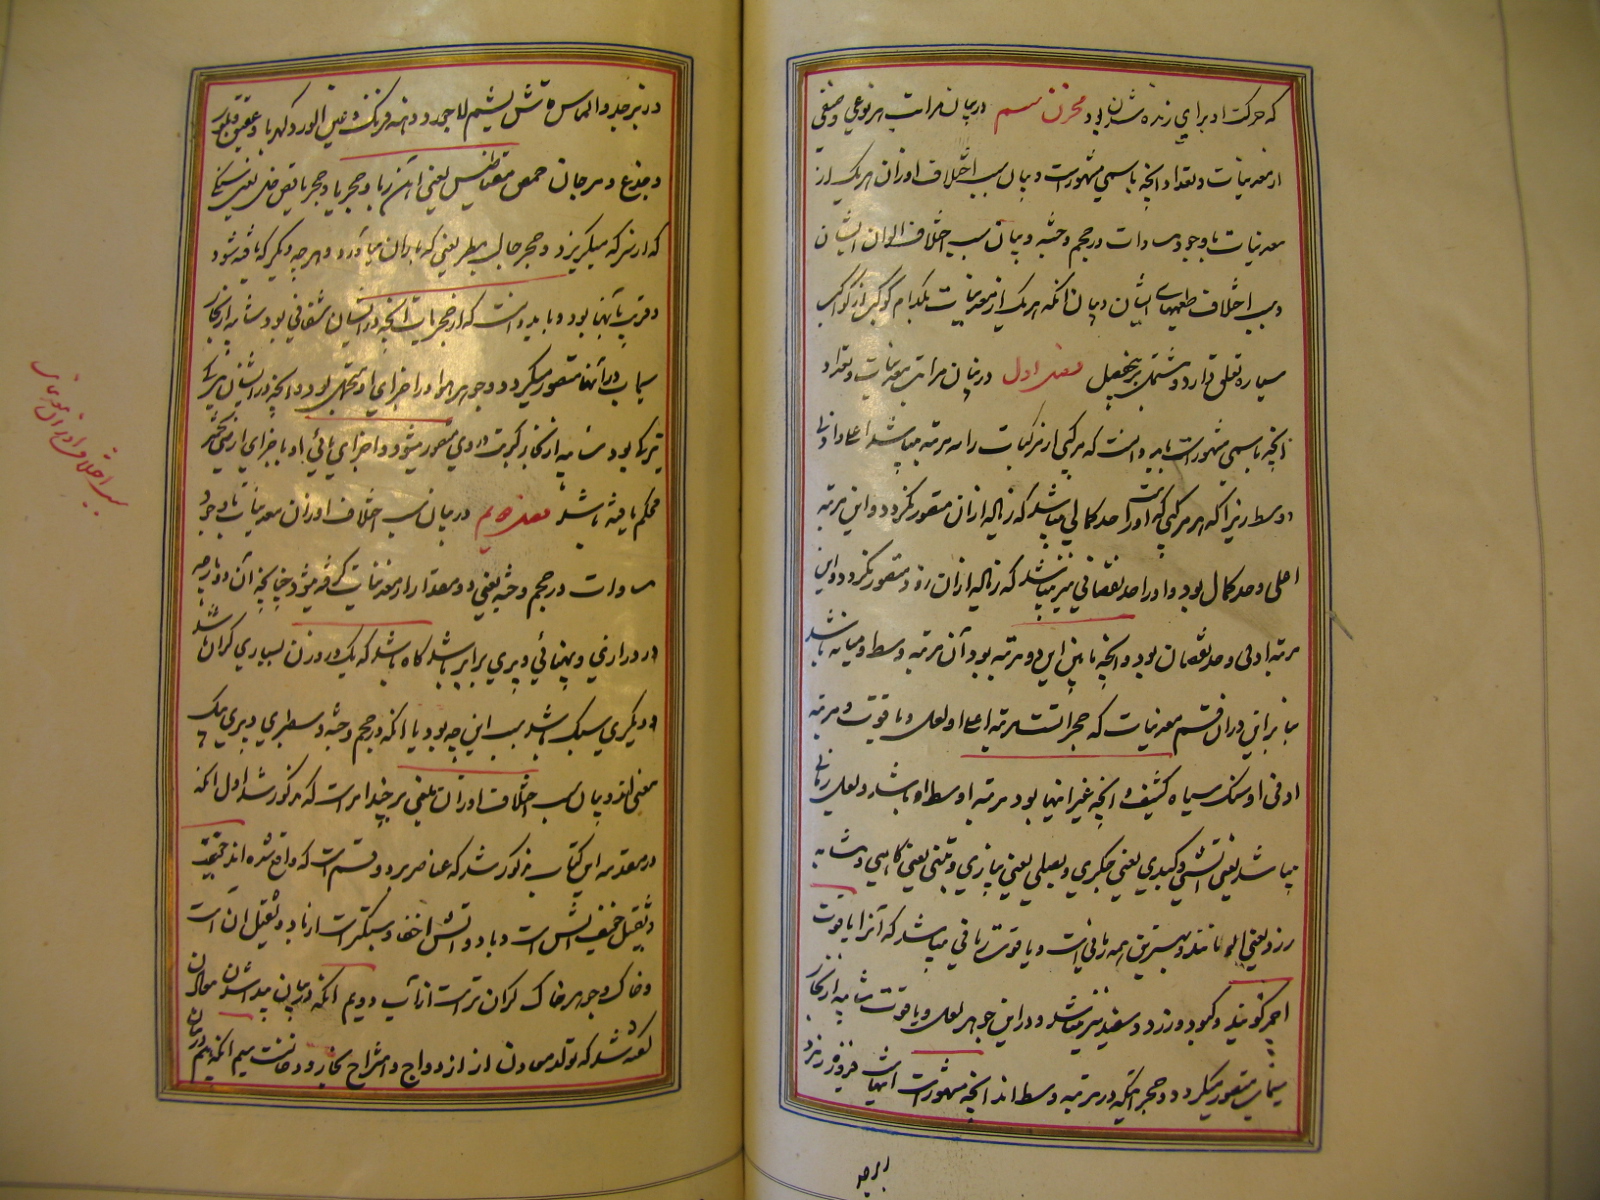 که حرکت او برای زنده شدن بود مخزن سیم در بیان مراتب هر نوعی و صنفی
از معدنیات و تعداد آنچه باسمی مشهورست و بیان سبب اختلاف اوزان هر یک از
معدنیات با وجود مساوات در حجم و جثه و بیان سبب اختلاف الوان ایشان
و سبب اختلاف طعمهای ایشان و بیان آنکه هر یک از معدنیات بکدام کوکبی از کواکب
سیاره تعلق دارد و مشتمل بر پنج فصل فصل اول در بیان مراتب معدنیات و تعداد
آنچه باسمی مشهورست باید دانست که هر مرکبی از مرکبات را سه مرتبه میباشد اعلی و ادنی
و وسط زیرا که هر مرکبی که هست او را حد کمالی میباشد که زیاده از آن متصور نگردد و این مرتبه
اعلی و حد کمال بود و او را حد نقصانی نیز میباشد که زیاده از آن متصور نگردد و این
مرتبه ادنی و حد نقصان بود و آنچه مابین این دو مرتبه بود آن مرتبه وسط و میانه باشد
بنا برین در آن قسم معدنیات که حجرست مرتبه اعلی او لعل و یاقوت و مرتبه
ادنی او سنگ سیاه کثیف و آنچه غیر اینها بود مرتبه اوسط او باشد و لعل رمانی
میباشد یعنی آتشی و کبدی یعنی جگری و بصلی یعنی پیازی و تبنی یعنی کاهی و مشابه
زرد یعنی مانند و بهترین همه رمانیست و یاقوت رمانی میباشد که آنرا یاقوت
احمر گویند و کبود و زرد و سفید نیز میباشد و در این جوهر لعل و یاقوت شایبه از بخار
سیمابی متصور میگردد و حجر آنچه در مرتبه وسط اند آنچه مشهورست اینهاست فیروزه زمرد
زبرجد
و زبرجد و الماس یشم لاجورد و دهنه فرنگ و عین الورد و کهربا و عقیق و بلور
و جذع و مرجان مقناطیس یعنی آهن ربا و حجر
که از سرکه میگریزد و حجر جالب مطر یعنی که باران میآورد و هر چه دیگر که یافته شود
و قریب بآنها بود و باید دانست که از حجریات آنچه در ایشان شفافی بود شایبه از بخار
سیماب در آنها متصور میگردد و جوهر هوا در اجزای او بود و آنچه در ایشان تیرگی
تیرها بود شایبه از بخار کبریت در وی متصور میشود و اجزای مائی او با اجزای ارضی
محکم یافته باشد فصل دویم در بیان سبب اختلاف اوزان معدنیات با وجود
مساوات در حجم و جثه یعنی دو مقدار از معدنیات گرفته میشود چنانچه آن دو پارچه
در درازی و پهنائی و پری برابر باشد گاه باشد که یک در وزن بسیاری گران باشد
و دیگری سبک باشد سبب این چه بود با آنکه در حجم و جثه و سطبری و پری یک
معنی اند و بیان سبب اختلاف اوزان مبنی بر چند امرست که مذکور شد اول آنکه
در مقدمه این کتاب مذکور شد که عناصر بر دو قسمست که واقع شده اند خفیف
و ثقیل خفیف آتش است و باد و آتش اخف و سبکترست از باد و ثقیل آن است
و خاک و جوهر خاک گران ترست از آب دویم آنکه در بیان پیدا شدن معادن
گفته شد که تولد معادن از ازدواج و امتزاج بخار و دخانست سیم آنکه
سبب اختلاف اوزان